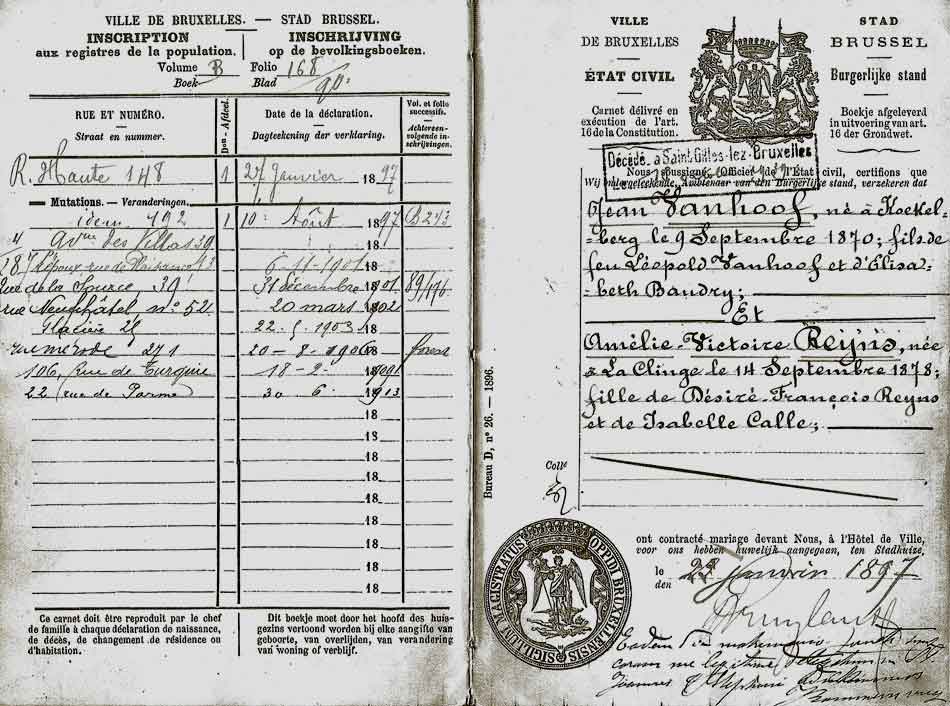 VILLE DE BRUXELLES. — STAD BRUSSEL.
INSCRIPTION
aux registres de la population.
INSCHRIJVING
op de bevolkingsboeken.
Volume B Folio 168
Boek Blad
RUE ET NUMÉRO.
Straat en nummer.
Don - Afdeel.
Date de la déclaration.
Dagteekening der verklaring.
Vol. et folio
successifs.
Achtereen-
volgende in-
schrijvingen.
R. Haute 148 1 27 Janvier 1897
Mutations. — Veranderingen.
idem 192 1 10 Août 1897 B273
Avue des Villas 39 18
6-11-1901 18
rue de la Source 39 31 décembre 1901 89/496
rue Neufchâtel n° 52 20 mars 1902
Glacière 25 22 . 5 . 1903 18
rue mérode 271 20 - 8 - 1906
106, Rue de Turquie 18 - 2 -
22 rue de Parme 30 6 1913
18
18
18
18
18
18
18
18
18
Ce carnet doit être reproduit par le chef
de famille à chaque déclaration de naissance,
de décès, de changement de résidence ou
d'habitation.
Dit boekje moet door het hoofd des huis-
gezins vertoond worden bij elke aangifte van
geboorte, van overlijden, van verandering
van woning of verblijf.
Bureau D, n° 26. — 1896.
VILLE
DE BRUXELLES
ÉTAT CIVIL
Carnet délivré en
exécution de l'art.
16 de la Constitution.
STAD
BRUSSEL
Burgerlijke stand
Boekje afgeleverd
in uitvoering van art.
16 der Grondwet.
Décédé à Saint-Gilles-lez-Bruxelles
Nous soussigné, Officier de l'État civil, certifions que
Wij ondergeteekende, Ambtenaar van den Burgerlijke stand, verzekeren dat
Jean Vanhoof, né à Koekel-
berg le 9 Septembre 1870; fils de
feu Léopold Vanhoof et d'Elisa-
beth Baudry;
Et
Amélie-Victoire Reyns, née
à La Clinge le 14 Septembre 1878;
fille de Désiré-François Reyns
et de Isabelle Calle;
Collé
ont contracté mariage devant Nous, à l'Hôtel de Ville,
voor ons hebben huwelijk aangegaan, ten Stadhuize,
le 27 Janvier 1897
den
SIGILL MAGISTRATUS OPPIDI BRUXELLENSIS
Eadem die
coram me
Joannes